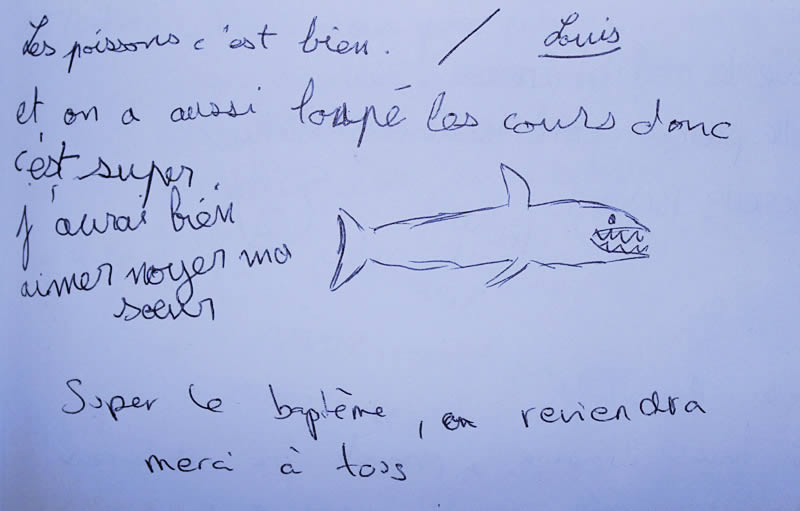 Les poissons c'est bien. / Louis
et on a aussi loupé les cours donc
c'est super
j'aurai bien
aimer noyer ma
soeur
Super le baptême, on reviendra
merci à tous